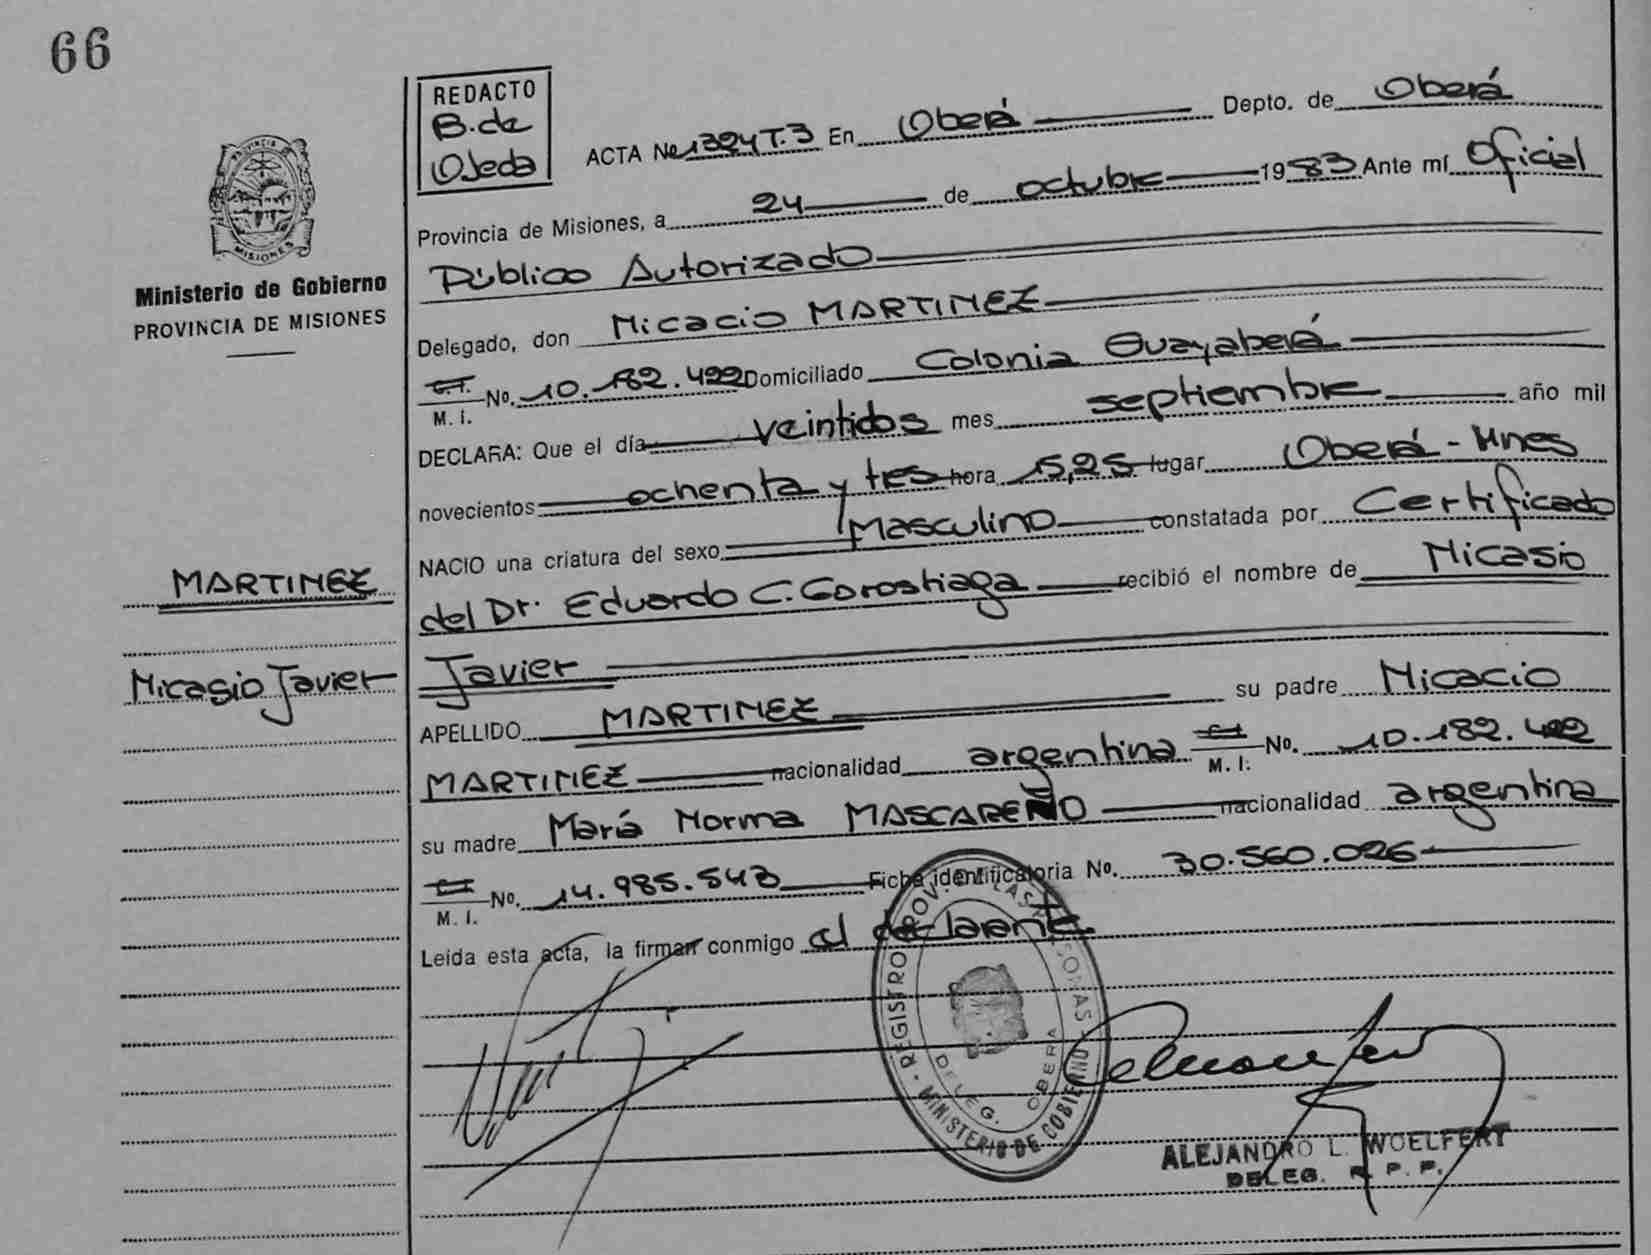 66
REDACTO
B. de
Ojeda
ACTA No 1324 T.3 En Oberá Depto. de Oberá
Provincia de Misiones, a 24 de octubre 1983 Ante mí Oficial
Público Autorizado
Delegado, don Nicacio MARTINEZ
C.I.
M. I. No. 10.182.422 Domiciliado Colonia Guayaberá
DECLARA: Que el día veintidos mes septiembre año mil
novecientos ochenta y tres hora 15,25 lugar Oberá - Mnes
NACIO una criatura del sexo Masculino constatada por Certificado
del Dr. Eduardo C. Gorostiaga recibió el nombre de Nicasio
Javier
APELLIDO MARTINEZ su padre Nicacio
MARTINEZ nacionalidad argentina C.I. M. I. No. 10.182.422
su madre María Norma MASCAREÑO nacionalidad argentina
C.I.
M. I. No. 14.985.543 Ficha identificatoria No. 30.560.026
Leida esta acta, la firman conmigo el declarante.
PROVINCIA
MISIONES
Ministerio de Gobierno
PROVINCIA DE MISIONES
MARTINEZ
Nicasio Javier
REGISTRO PROV. DE LAS PERSONAS - MINISTERIO DE GOBIERNO
DELEG. OBERA
ALEJANDRO L. WOELFERT
DELEG. R. P. P.